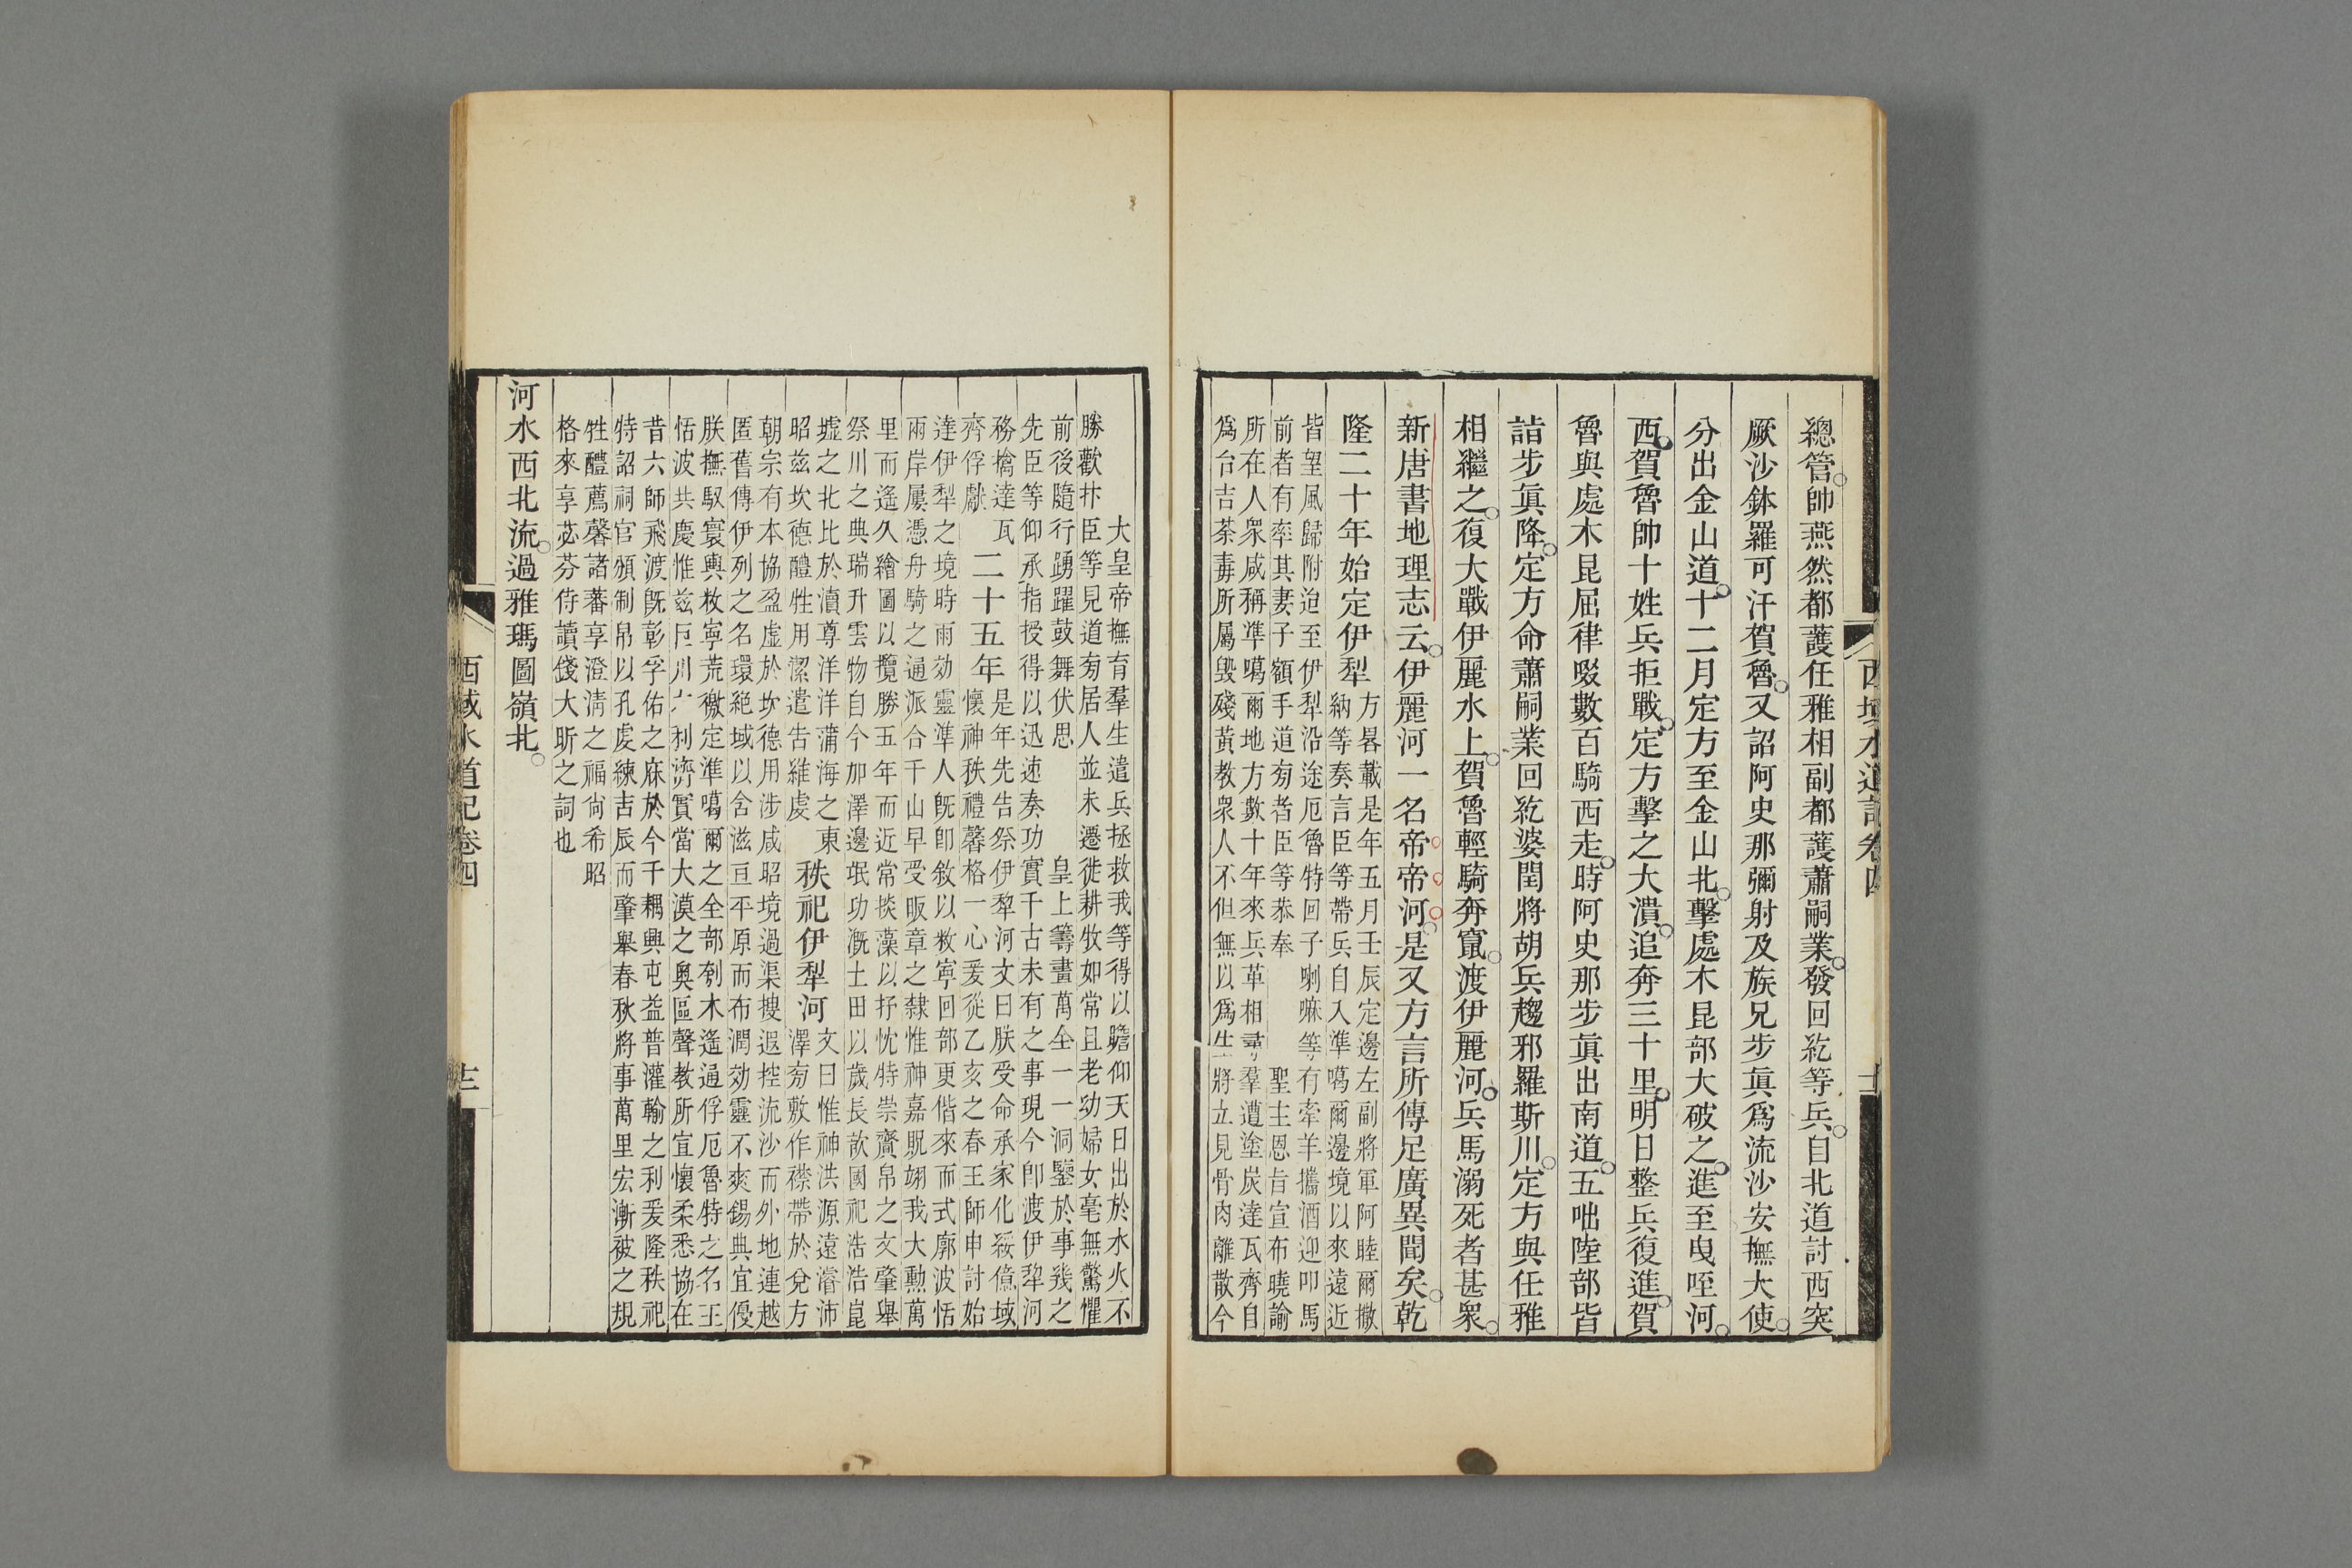 總管帥燕然都護任雅相副都護蕭嗣業發回紇等兵自北道討西突
厥沙鉢羅可汗賀魯又詔阿史那彌射及族兄步眞爲流沙安撫大使
分出金山道十二月定方至金山北擊處木昆部大破之進至曳咥河
西賀魯帥十姓兵拒戰定方擊之大潰追奔三十里明日整兵復進賀
魯與處木昆屈律啜數百騎西走時阿史那步眞出南道五咄陸部皆
詣步眞降定方命蕭嗣業回紇婆閏將胡兵趨邪羅斯川定方與任雅
相繼之復大戰伊麗水上賀魯輕騎奔竄渡伊麗河兵馬溺死者甚衆
新唐書地理志云伊麗河一名帝帝河是又方言所傳足廣異聞矣乾
隆二十年始定伊犁
方畧載是年五月壬辰定邊左副將軍阿睦爾撒
納等奏言臣等帶兵自入準噶爾邊境以來遠近
皆望風歸附迨至伊犁沿途厄魯特回子喇嘛等有牽羊攜酒迎叩馬
前者有率其妻子額手道旁者臣等恭奉 聖主恩旨宣布曉諭
所在人衆咸稱準噶爾地方數十年來兵革相尋羣遭塗炭達瓦齊自
爲台吉荼毒所屬毀殘黃教衆人不但無以爲生將立見骨肉離散今
大皇帝撫育羣生遣兵拯救我等得以瞻仰天日出於水火不
勝歡抃臣等見道旁居人並未遷徙耕牧如常且老幼婦女毫無驚懼
前後隨行踴躍鼓舞伏思 皇上籌畫萬全一一洞鑒於事幾之
先臣等仰承指授得以迅速奏功實千古未有之事現今卽渡伊犂河
務擒達瓦
齊俘獻
二十五年
是年先告祭伊犂河文曰朕受命承家化綏億域
懷神秩禮馨格一心爰從乙亥之春王師申討始
達伊犁之境時雨効靈準人旣卽敘以敉寧回部更偕來而式廓波恬
兩岸屢憑舟騎之通派合千山早受畈章之隸惟神嘉貺翊我大勳萬
里而遙久繪圖以攬勝五年而近常掞藻以抒忱特崇齎帛之文肇舉
祭川之典瑞升雲物自今加澤邊氓功溉土田以歲長歆國祀浩浩崑
墟之北比於瀆尊洋洋蒲海之東
昭茲坎德醴牲用潔遣吿維虔
秩祀伊犁河
文曰惟神洪源遠濬沛
澤旁敷作襟帶於兌方
朝宗有本協盈虛於坎德用涉咸昭境過渠搜遐控流沙而外地連越
匿舊傳伊列之名環絕域以含滋亘平原而布潤効靈不爽錫典宜優
朕撫馭寰輿敉寧荒徼定準噶爾之全部刳木遙通俘厄魯特之名王
恬波共慶惟茲巨川大利濟實當大漠之奧區聲教所宜懷柔悉協在
昔六師飛渡旣彰孚佑之庥於今千耦興屯益普灌輸之利爰隆秩祀
特詔祠官頒制帛以孔虔練吉辰而肇舉春秋將事萬里宏漸被之規
牲醴薦馨諸蕃享澄淸之福尙希昭
格來享苾芬侍讀錢大昕之詞也
河水西北流過雅瑪圖嶺北
西域水道記卷四